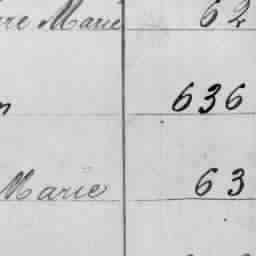 Marie 62
636
Marie 63